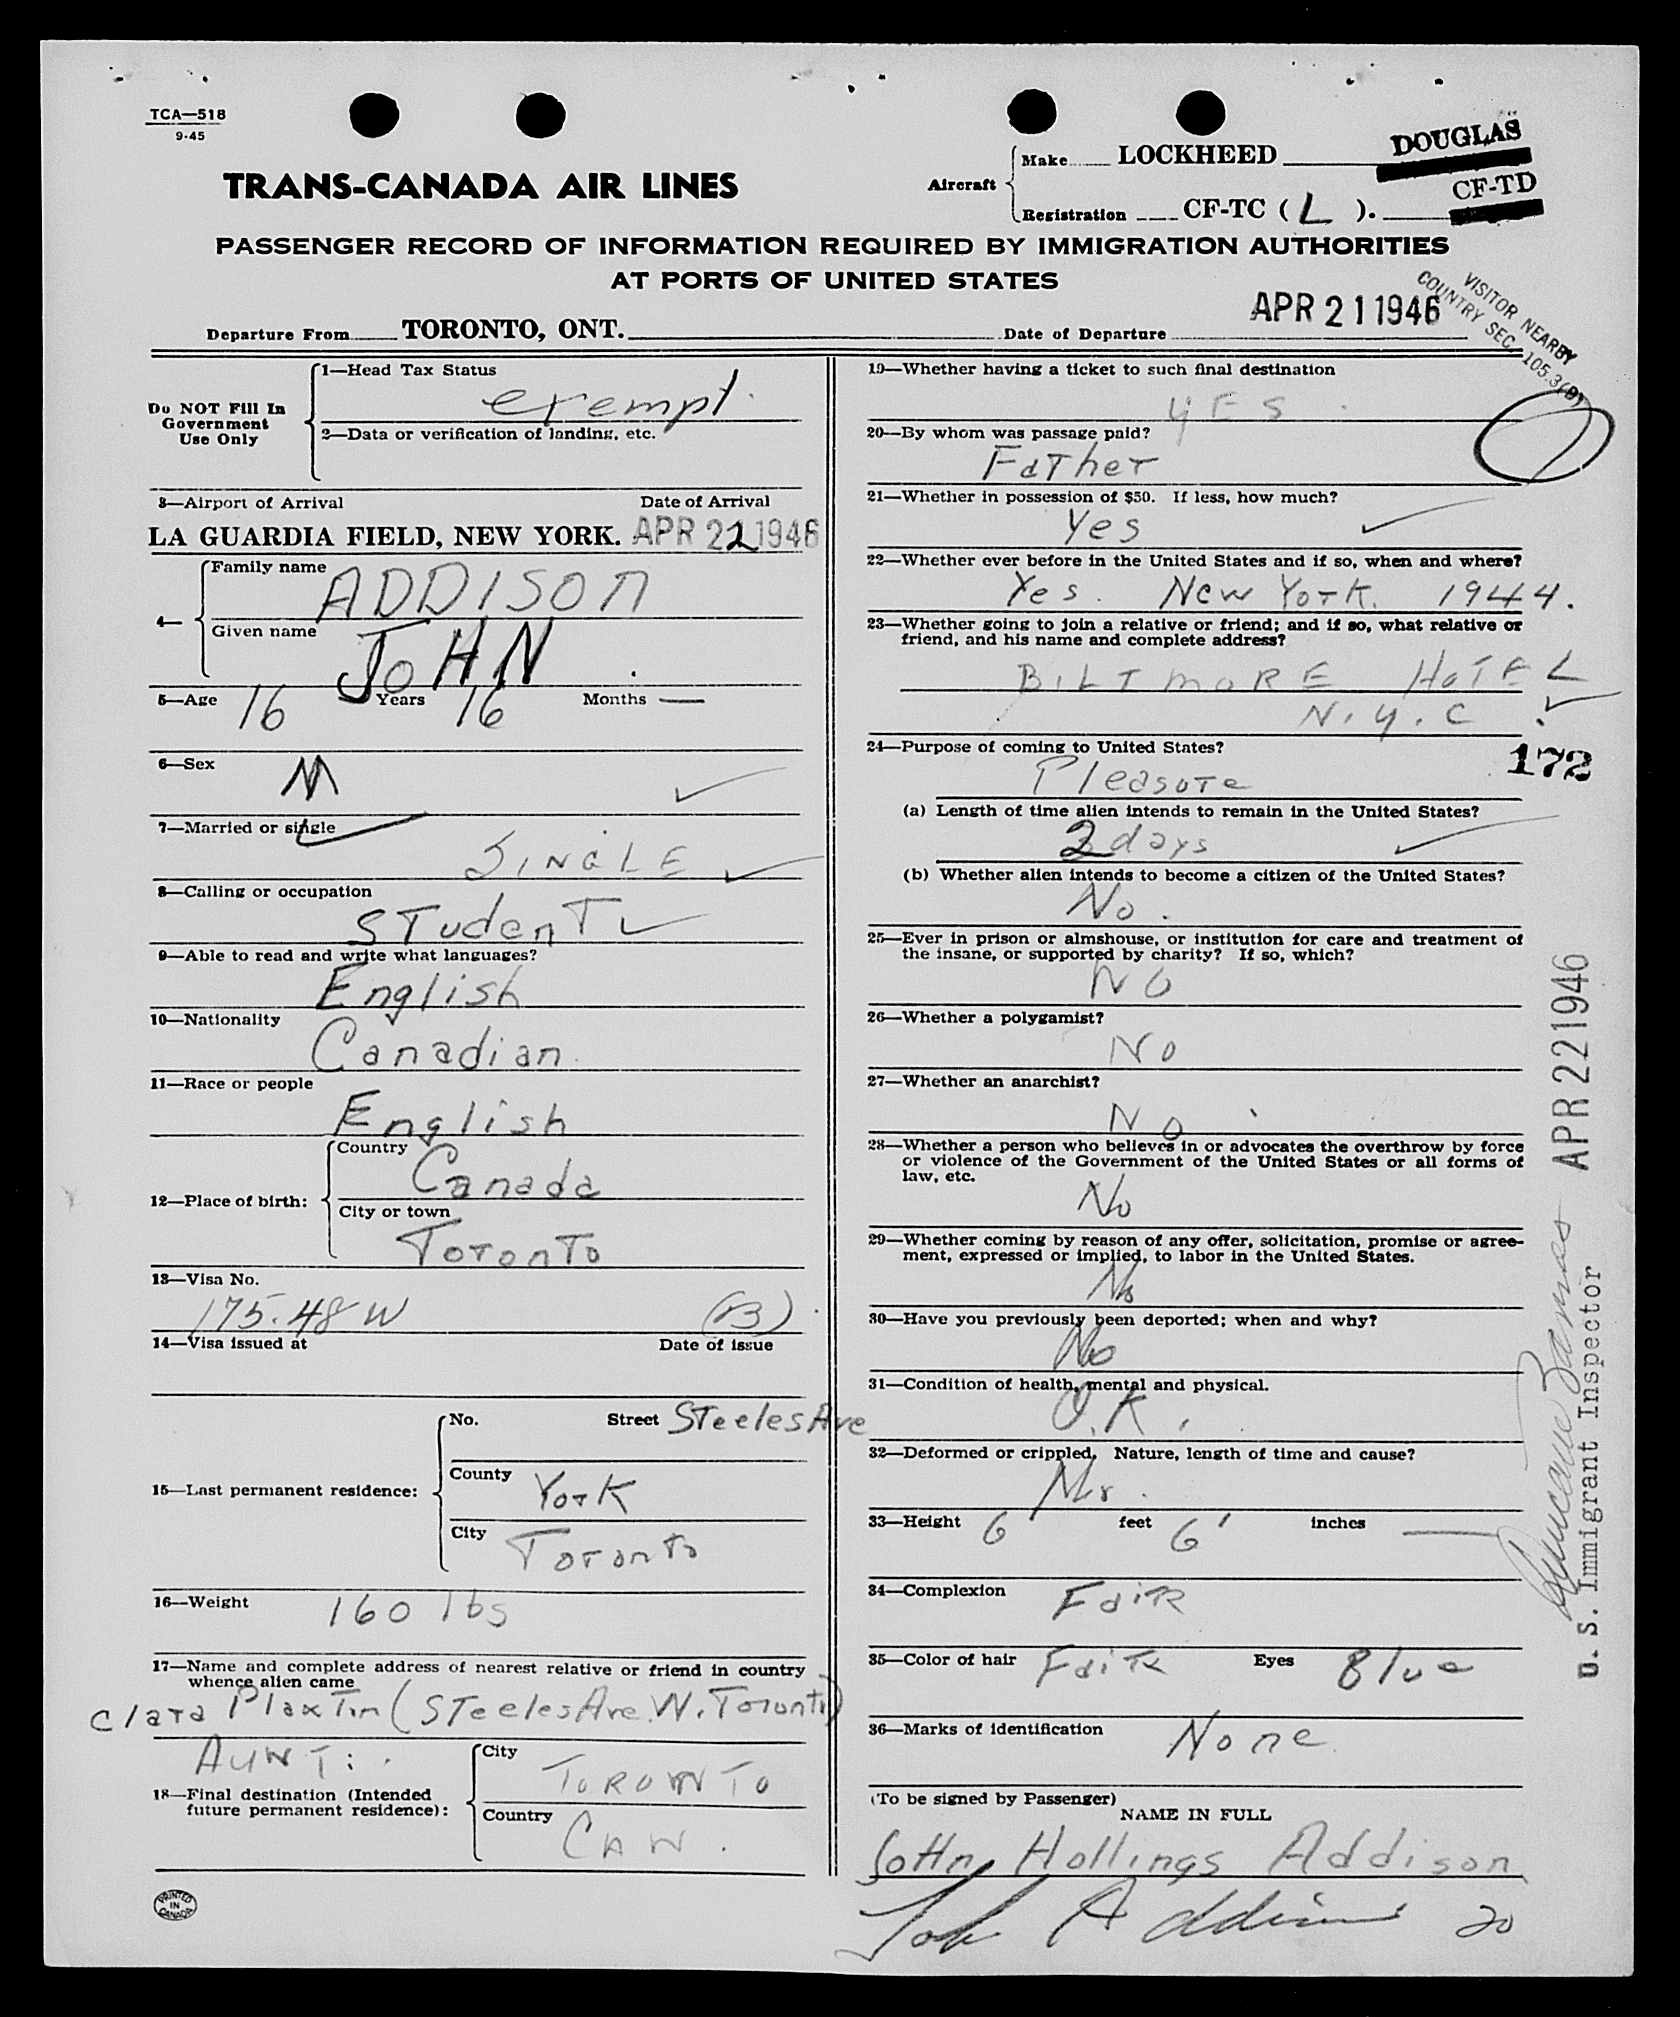 TCA—518
9-45
TRANS-CANADA AIR LINES
Aircraft
Make LOCKHEED DOUGLAS
Registration CF-TC ( L ). CF-TD
PASSENGER RECORD OF INFORMATION REQUIRED BY IMMIGRATION AUTHORITIES
AT PORTS OF UNITED STATES
VISITOR NEARBY
COUNTRY SEC. 105.3(B)
Departure From TORONTO, ONT. Date of Departure APR 21 1946
Do NOT Fill In
Government
Use Only
1—Head Tax Status
exempt.
2—Data or verification of landing, etc.
3—Airport of Arrival Date of Arrival
LA GUARDIA FIELD, NEW YORK. APR 22 1946
4—
Family name ADDISON
Given name JOHN
5—Age 16 Years 16 Months —
6—Sex M
7—Married or single
SINGLE
8—Calling or occupation
STudenT
9—Able to read and write what languages?
English
10—Nationality
Canadian
11—Race or people
English
12—Place of birth:
Country
Canada
City or town
ToronTo
13—Visa No.
175.48 W (B)
14—Visa issued at Date of issue
15—Last permanent residence:
No. Street STeeles Ave
County York
City ToronTo
16—Weight 160 lbs
17—Name and complete address of nearest relative or friend in country
whence alien came
Clara PlaxTon (STeeles Ave. W. ToronTo)
AUNT:
18—Final destination (Intended
future permanent residence):
City
TORONTO
Country
CAN.
PRINTED
IN
CANADA
19—Whether having a ticket to such final destination
YES
20—By whom was passage paid?
FaTher
21—Whether in possession of $50. If less, how much?
Yes
22—Whether ever before in the United States and if so, when and where?
Yes. New York. 1944.
23—Whether going to join a relative or friend; and if so, what relative or
friend, and his name and complete address?
BILTMORE HOTEL
N.Y.C
24—Purpose of coming to United States?
172
Pleasure
(a) Length of time alien intends to remain in the United States?
days
(b) Whether alien intends to become a citizen of the United States?
No.
25—Ever in prison or almshouse, or institution for care and treatment of
the insane, or supported by charity? If so, which?
NO
26—Whether a polygamist?
No
27—Whether an anarchist?
No
28—Whether a person who believes in or advocates the overthrow by force
or violence of the Government of the United States or all forms of
law, etc.
No
29—Whether coming by reason of any offer, solicitation, promise or agree-
ment, expressed or implied, to labor in the United States.
No
30—Have you previously been deported; when and why?
No
31—Condition of health, mental and physical.
O.K.
32—Deformed or crippled, Nature, length of time and cause?
No.
33—Height 6 feet 6' inches —
34—Complexion Fair
35—Color of hair Fair Eyes Blue
36—Marks of identification None
(To be signed by Passenger)
NAME IN FULL
John Hollings Addison
John Addison 20
APR 22 1946
U. S. Immigrant Inspector